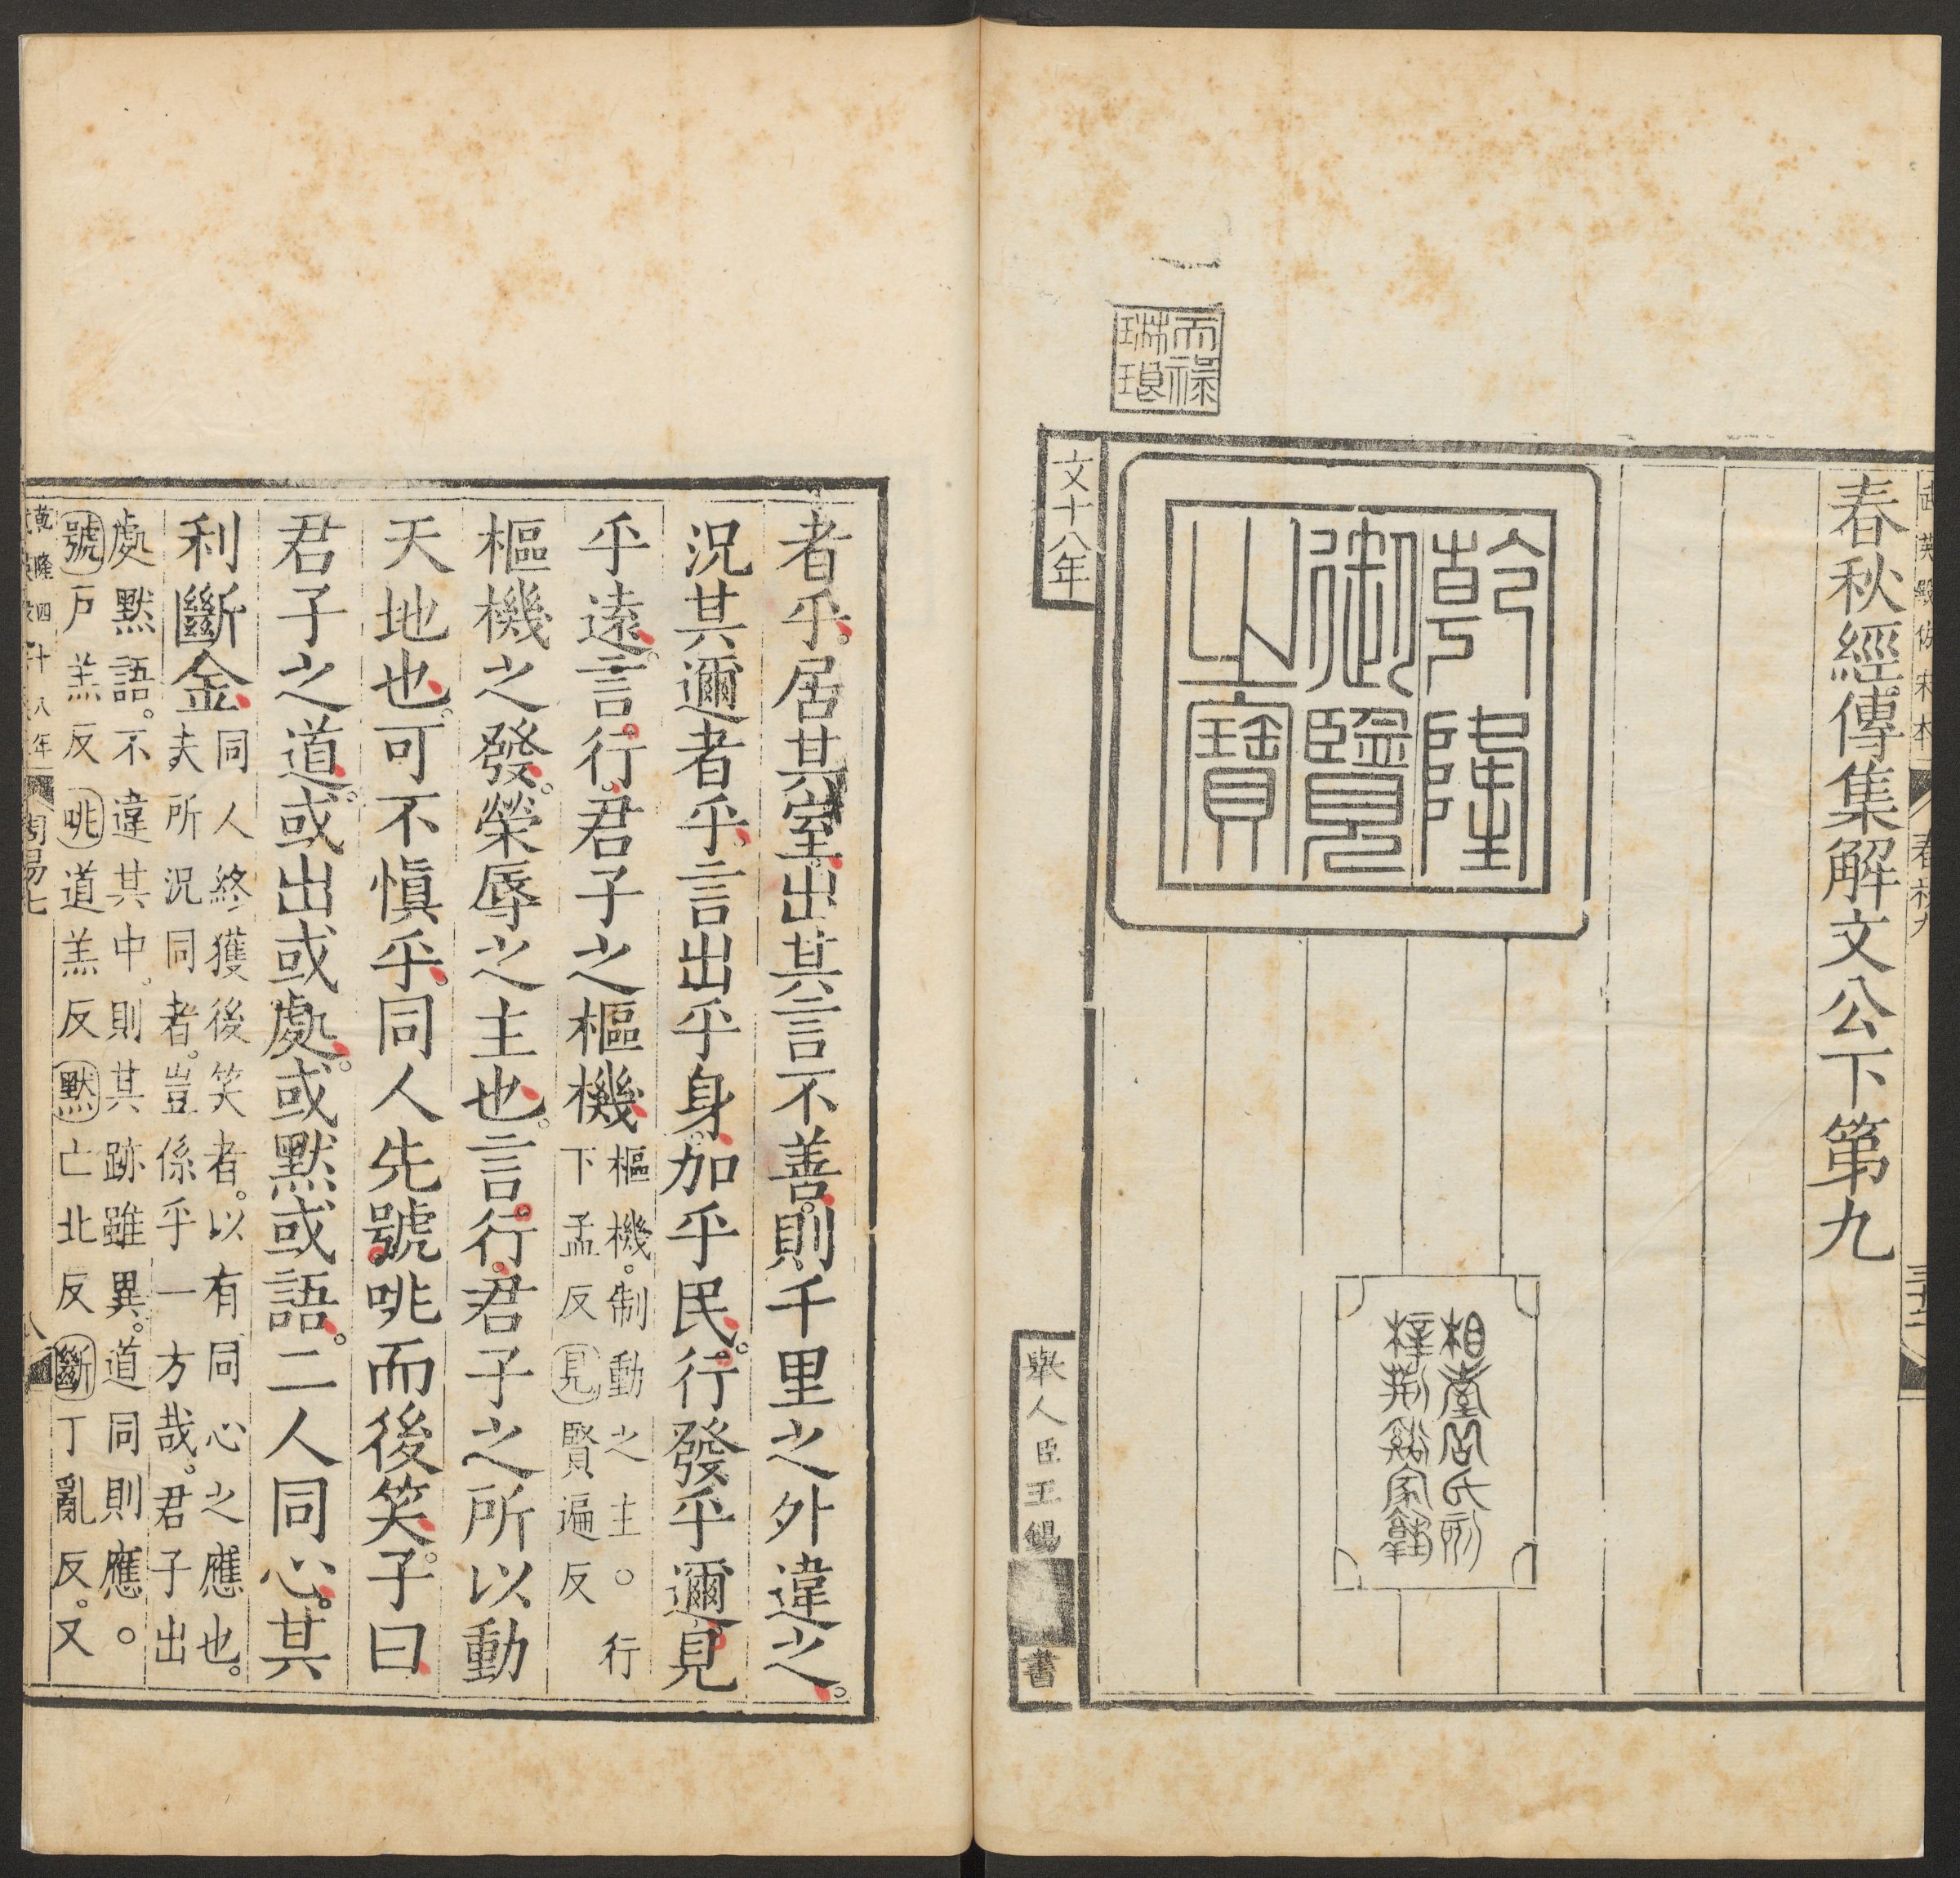 春秋經傳集解文公下第九
乾隆
御覽
之寶
天祿
琳琅
相臺岳氏刻
梓荊谿家塾
文十八年
舉人臣王錫
書
者乎居其室出其言不善則千里之外違之
況其邇者乎言出乎身加乎民行發乎邇見
乎遠言行君子之樞機
樞機制動之主○行
下孟反見賢遍反
樞機之發榮辱之主也言行君子之所以動
天地也可不慎乎同人先號咷而後笑子曰
君子之道或出或處或默或語二人同心其
利斷金
同人終獲後笑者以有同心之應也
夫所況同者豈係乎一方哉君子出
處默語不違其中則其跡雖異道同則應○
號戶羔反咷道羔反默亡北反斷丁亂反又
乾隆四十八年
周易七
八